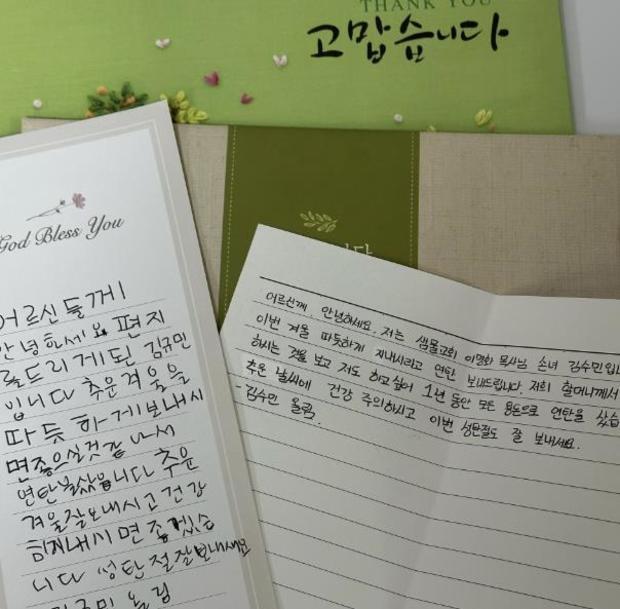 THANK YOU
고맙습니다
God Bless You
어르신들께
안녕하세요 편지
를드리게된 김규민
입니다 추운겨울을
따듯하게보내시
면좋으실것같아서
연탄불샀습니다 추운
겨울잘보내시고건강
하지내시면 좋겠습
니다 성탄절잘보내세요
올림
어르신께. 안녕하세요. 저는 샘물교회 이명화 목사님 손녀 김수민입니
이번 겨울 따뜻하게 지내시라고 연탄 보내드립니다. 저희 할머니께서
하시는 것을 보고 저도 하고싶어 1년 동안 모은 용돈으로 연탄을 샀습
추운 날씨에 건강 주의하시고 이번 성탄절도 잘 보내세요.
-김수민 올림.